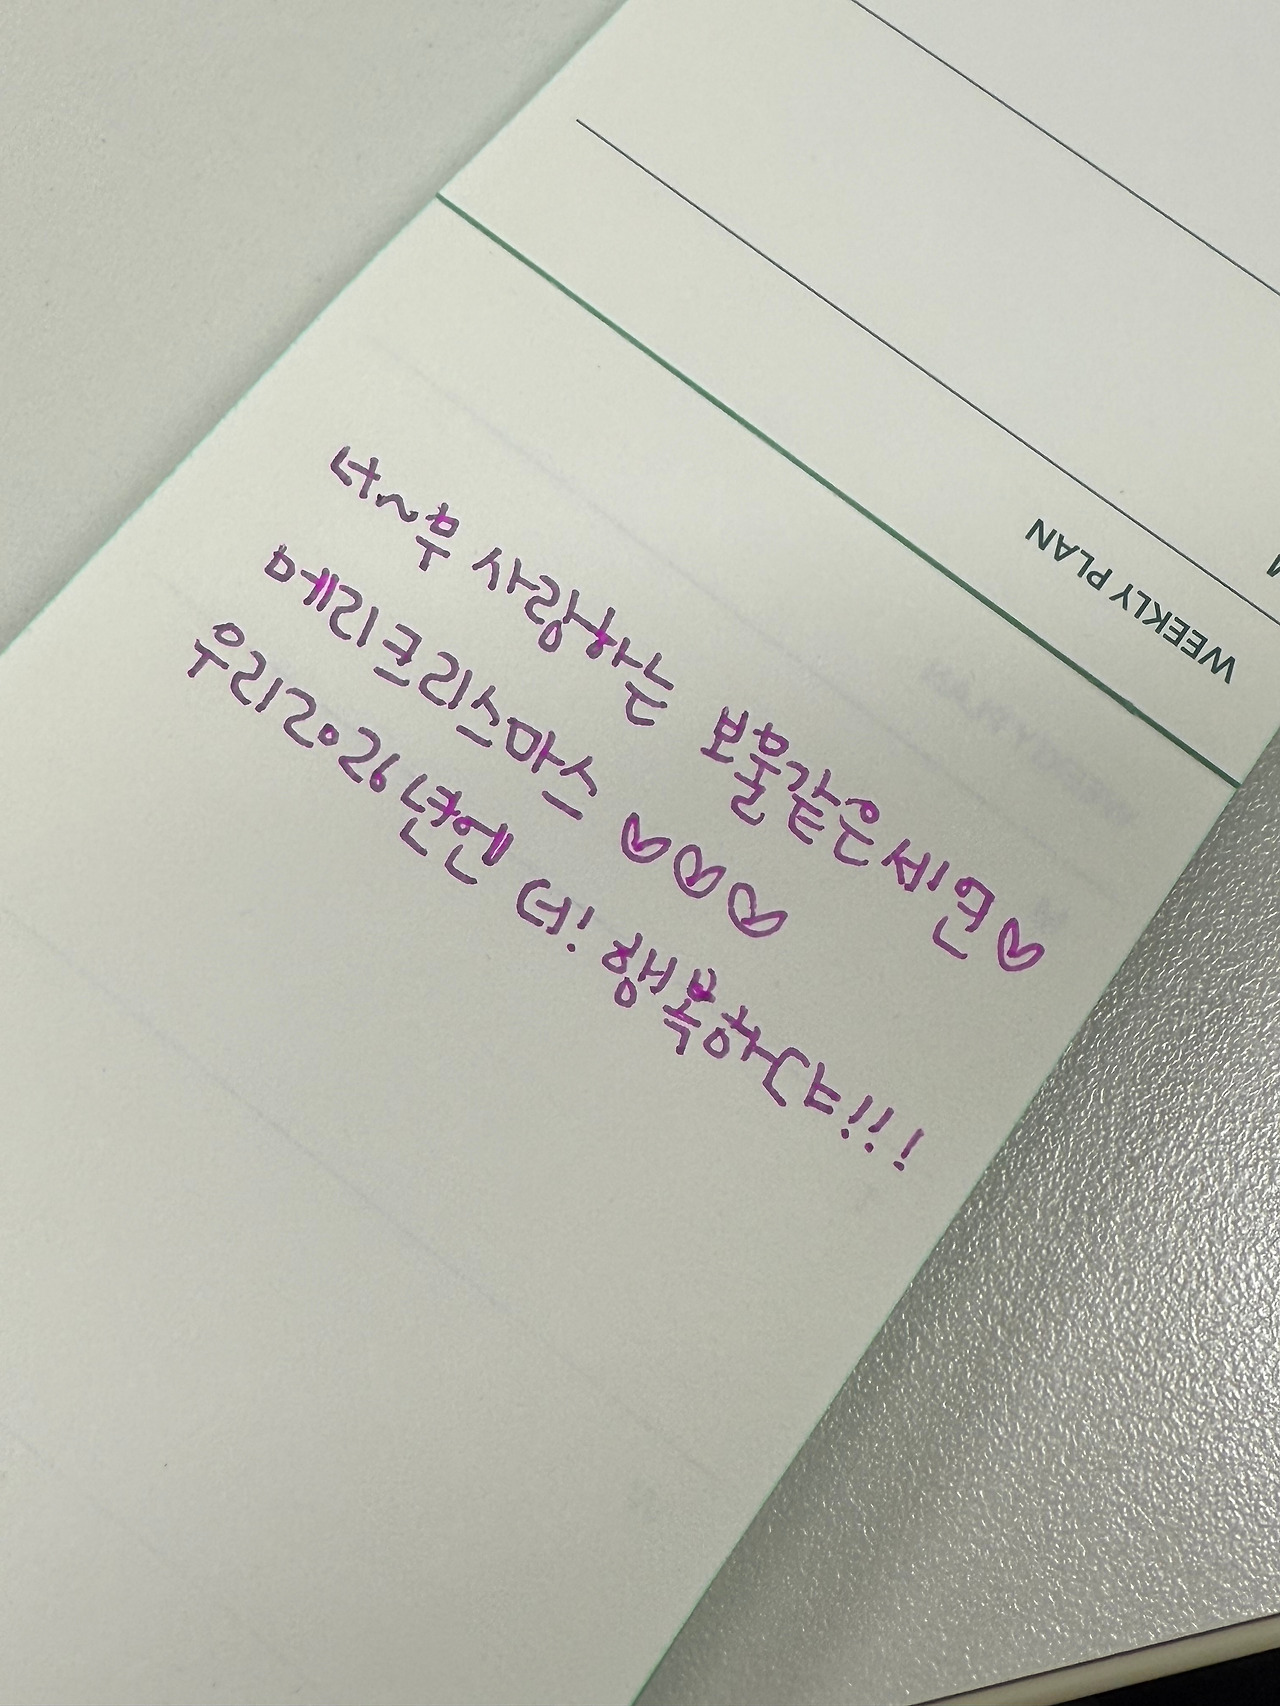 너~무 사랑하는 보물같은세연♡
메리크리스마스 ♡♡♡
우리2026년엔 더! 행복하자!!!
WEEKLY PLAN